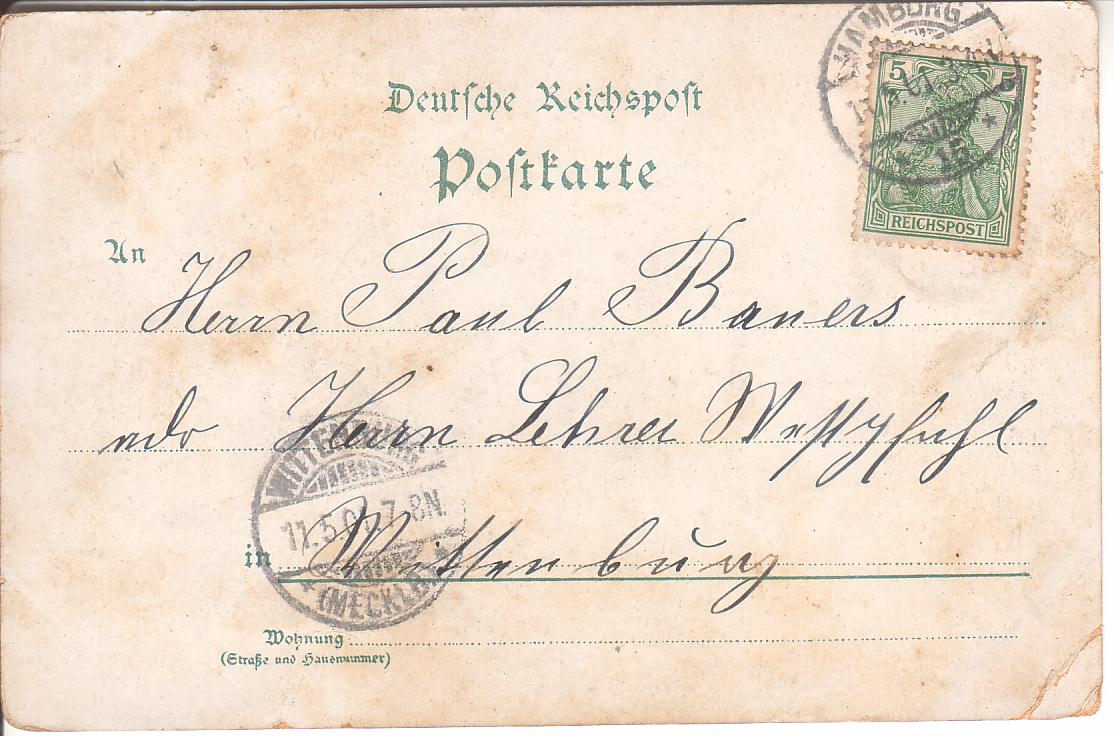 Deutsche Reichspost
Postkarte
HAMBURG
11.5.01.3
15
5 5
REICHSPOST
An Herrn Paul Baners
Herrn Lehrer Westpfahl
in Wittenburg
WITTENBURG
11.5.01.7-8N.
(MECKLB.)
Wohnung
(Straße und Hausnummer)